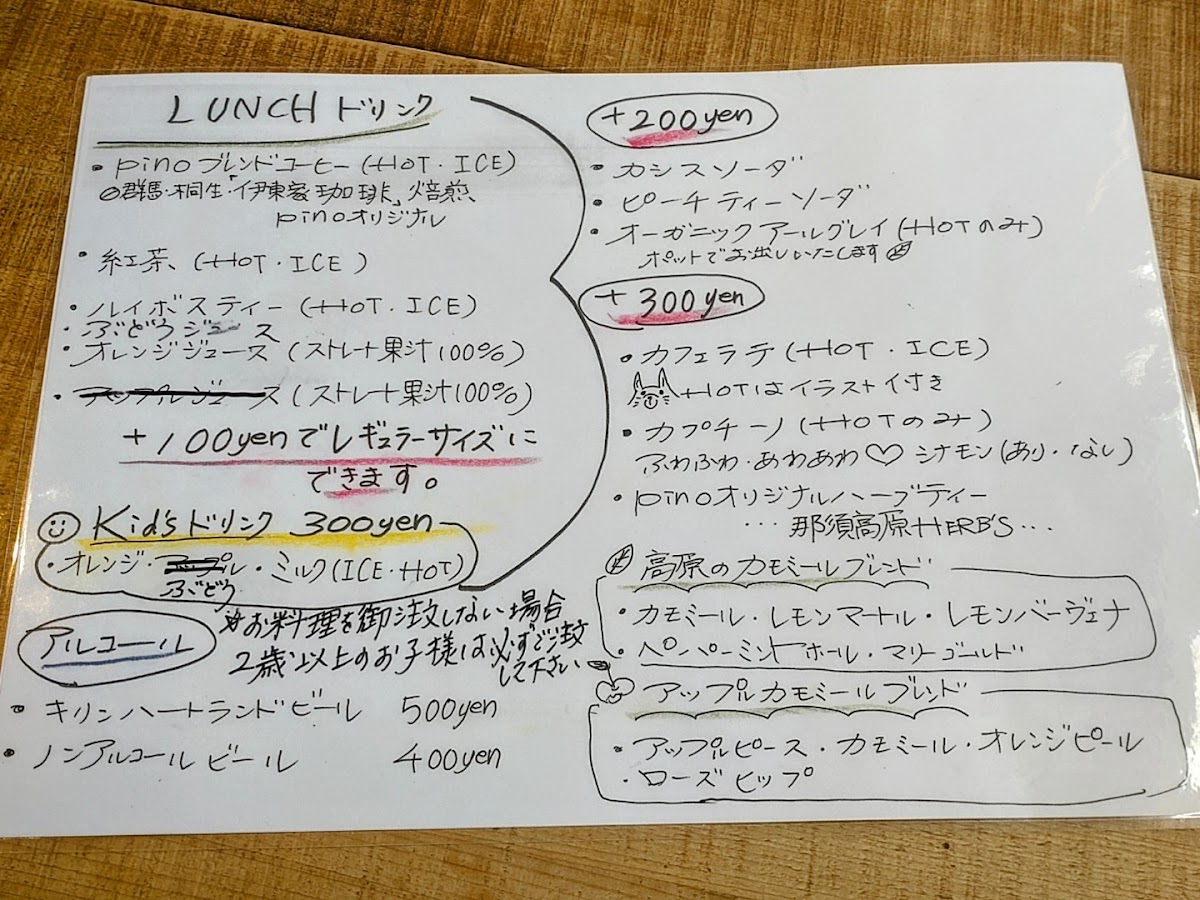 LUNCH ドリンク
・pinoブレンドコーヒー(HOT・ICE)
◎群馬・桐生・「伊東家珈琲」焙煎、
pinoオリジナル
・紅茶、(HOT・ICE)
・ルイボスティー(HOT・ICE)
・ぶどうジュース
・オレンジジュース(ストレート果汁100%)
・アップルジュース(ストレート果汁100%)
+100yenでレギュラーサイズに
できます。
Kid'sドリンク 300yen
・オレンジ・アップル・ミルク(ICE・HOT)
ぶどう
アルコール
※お料理を御注文しない場合
2歳以上のお子様は必ずご注文
して下さい
・キリンハートランドビール 500yen
・ノンアルコールビール 400yen
+200yen
・カシスソーダ
・ピーチティーソーダ
・オーガニックアールグレイ(HOTのみ)
ポットでお出しいたします
+300yen
・カフェラテ(HOT・ICE)
HOTはイラスト付き
・カプチーノ(HOTのみ)
ふわふわ・あわあわ♡シナモン(あり・なし)
・pinoオリジナルハーブティー
…那須高原HERB'S…
高原のカモミールブレンド
・カモミール・レモンマートル・レモンバーヴェナ
・ペパーミントホール・マリーゴールド
アップルカモミールブレンド
・アップルピース・カモミール・オレンジピール
・ローズヒップ